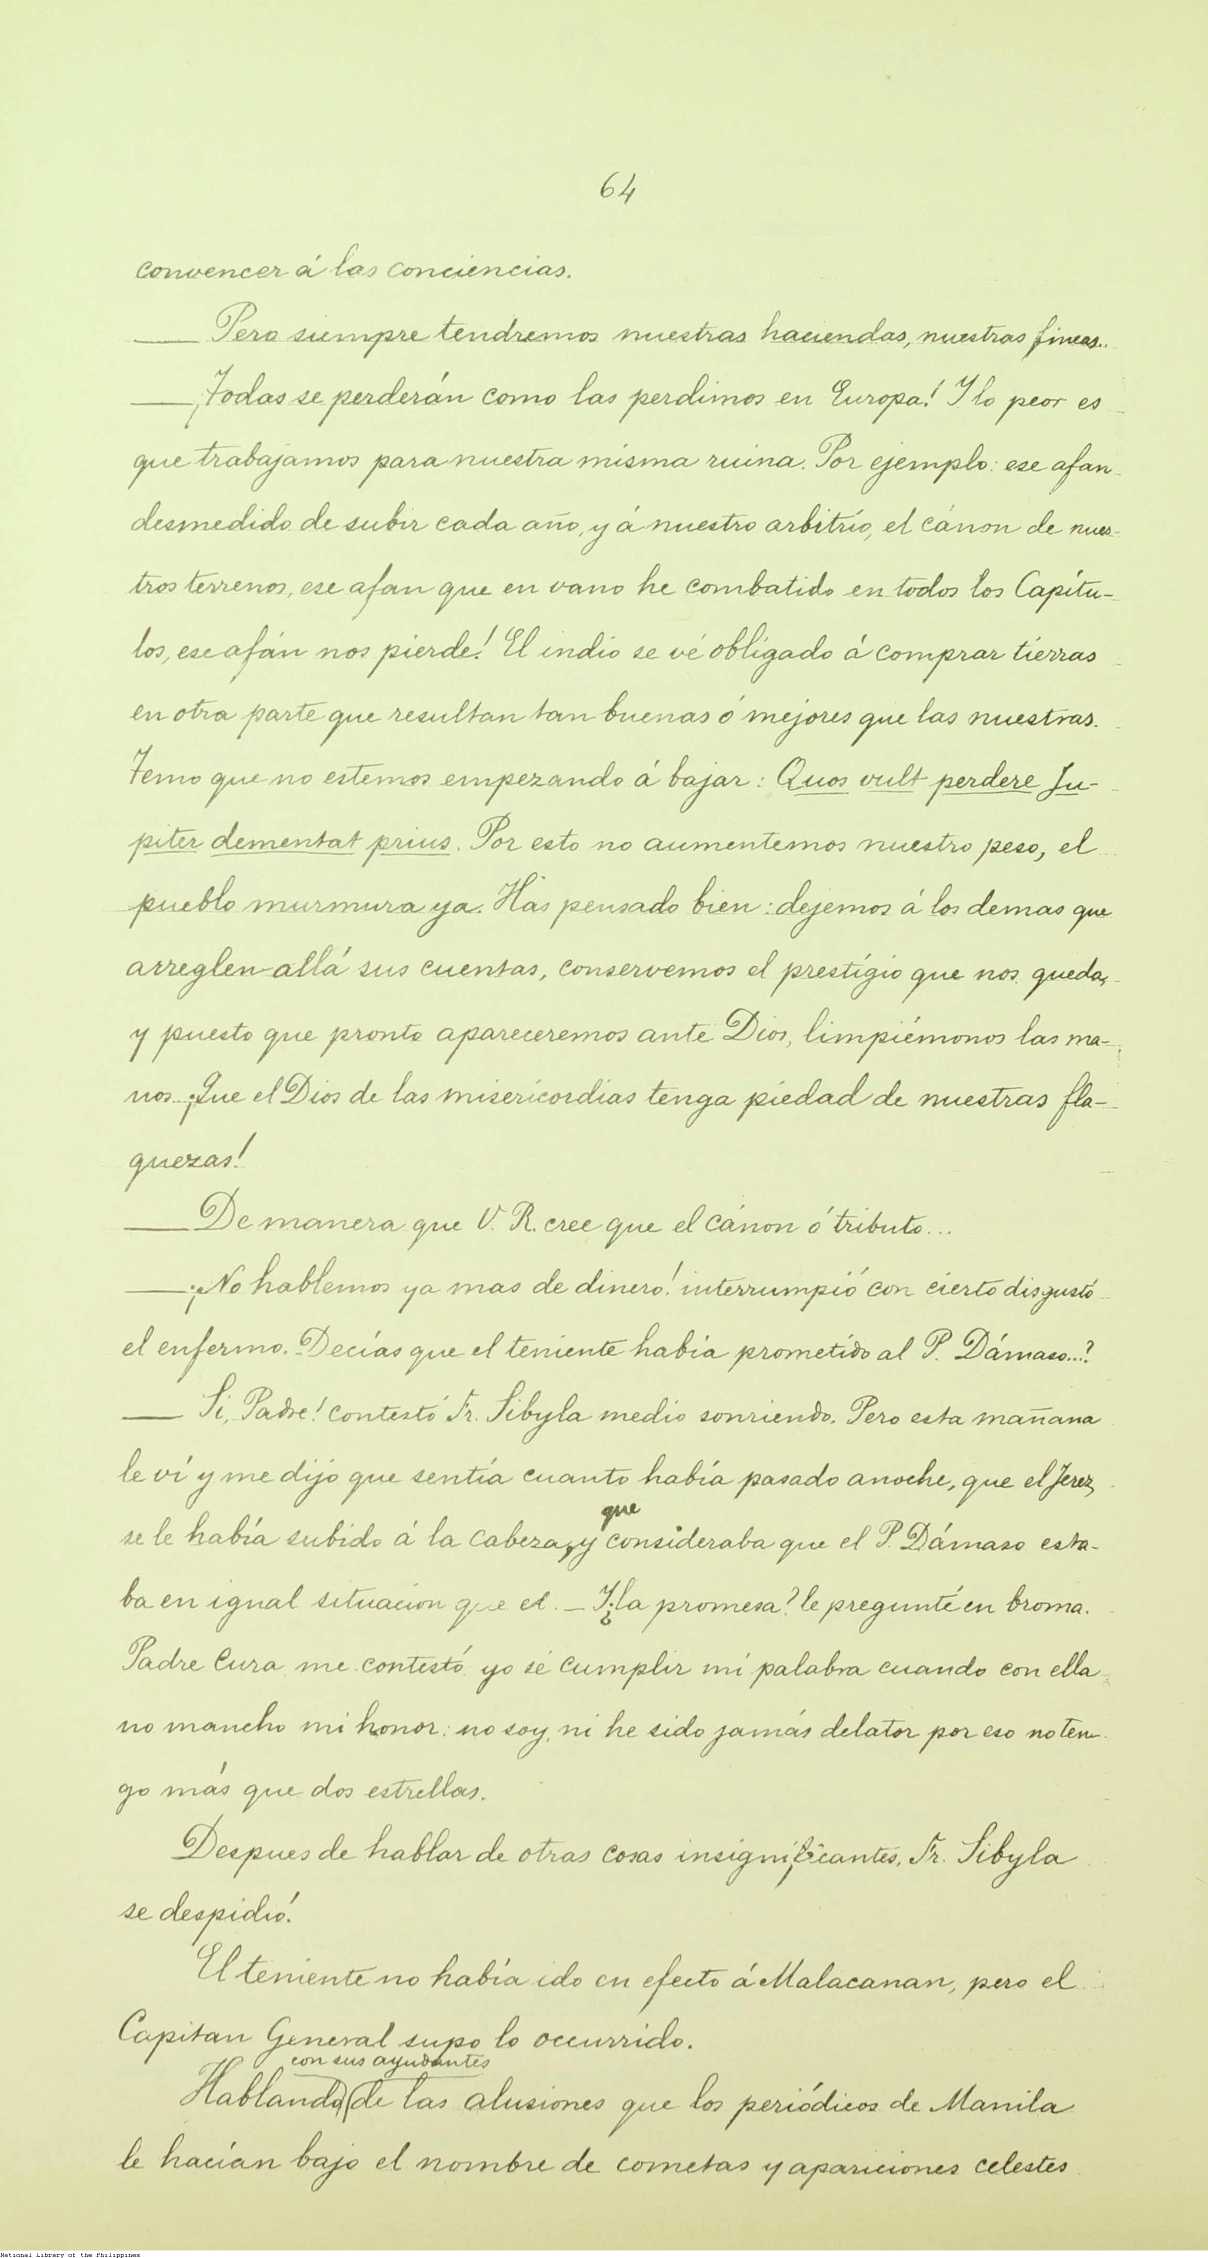 64
convencer á las conciencias.
— Pero siempre tendremos nuestras haciendas, nuestras fincas..
— ¡Todas se perderán como las perdimos en Europa! Y lo peor es
que trabajamos para nuestra misma ruina. Por ejemplo: ese afan
desmedido de subir cada año, y á nuestro arbitrio, el cánon de nues-
tros terrenos, ese afan que en vano he combatido en todos los Capítu-
los, ese afán nos pierde! El indio se vé obligado á comprar tierras
en otra parte que resultan tan buenas ó mejores que las nuestras.
Temo que no estemos empezando á bajar: Quos vult perdere Ju-
piter dementat prius. Por esto no aumentemos nuestro peso, el
pueblo murmura ya. Has pensado bien: dejemos á los demas que
arreglen allá sus cuentas, conservemos el prestígio que nos queda,
y puesto que pronto apareceremos ante Dios, limpiémonos las ma-
nos. ¡Que el Dios de las misericordias tenga piedad de nuestras fla-
quezas!
— De manera que V. R. cree que el cánon ó tributo...
— ¡No hablemos ya mas de dinero! interrumpió con cierto disgusto
el enfermo. Decías que el teniente había prometido al P. Dámaso...?
— Si, Padre! contestó Fr. Sibyla medio sonriendo. Pero esta mañana
le ví y me dijo que sentía cuanto había pasado anoche, que el Jerez
se le había subido á la cabeza, y que consideraba que el P. Dámaso esta-
ba en igual situacion que el. — Y ¿la promesa? le pregunté en broma.
Padre Cura, me contestó, yo sé cumplir mi palabra cuando con ella
no mancho mi honor: no soy, ni he sido jamás delator por eso no ten-
go más que dos estrellas.
Despues de hablar de otras cosas insignificantes, Fr. Sibyla
se despidió.
El teniente no había ido en efecto á Malacanan, pero el
Capitan General supo lo occurrido.
Hablando con sus ayudantes de las alusiones que los periódicos de Manila
le hacían bajo el nombre de cometas y apariciones celestes
National Library of the Philippines